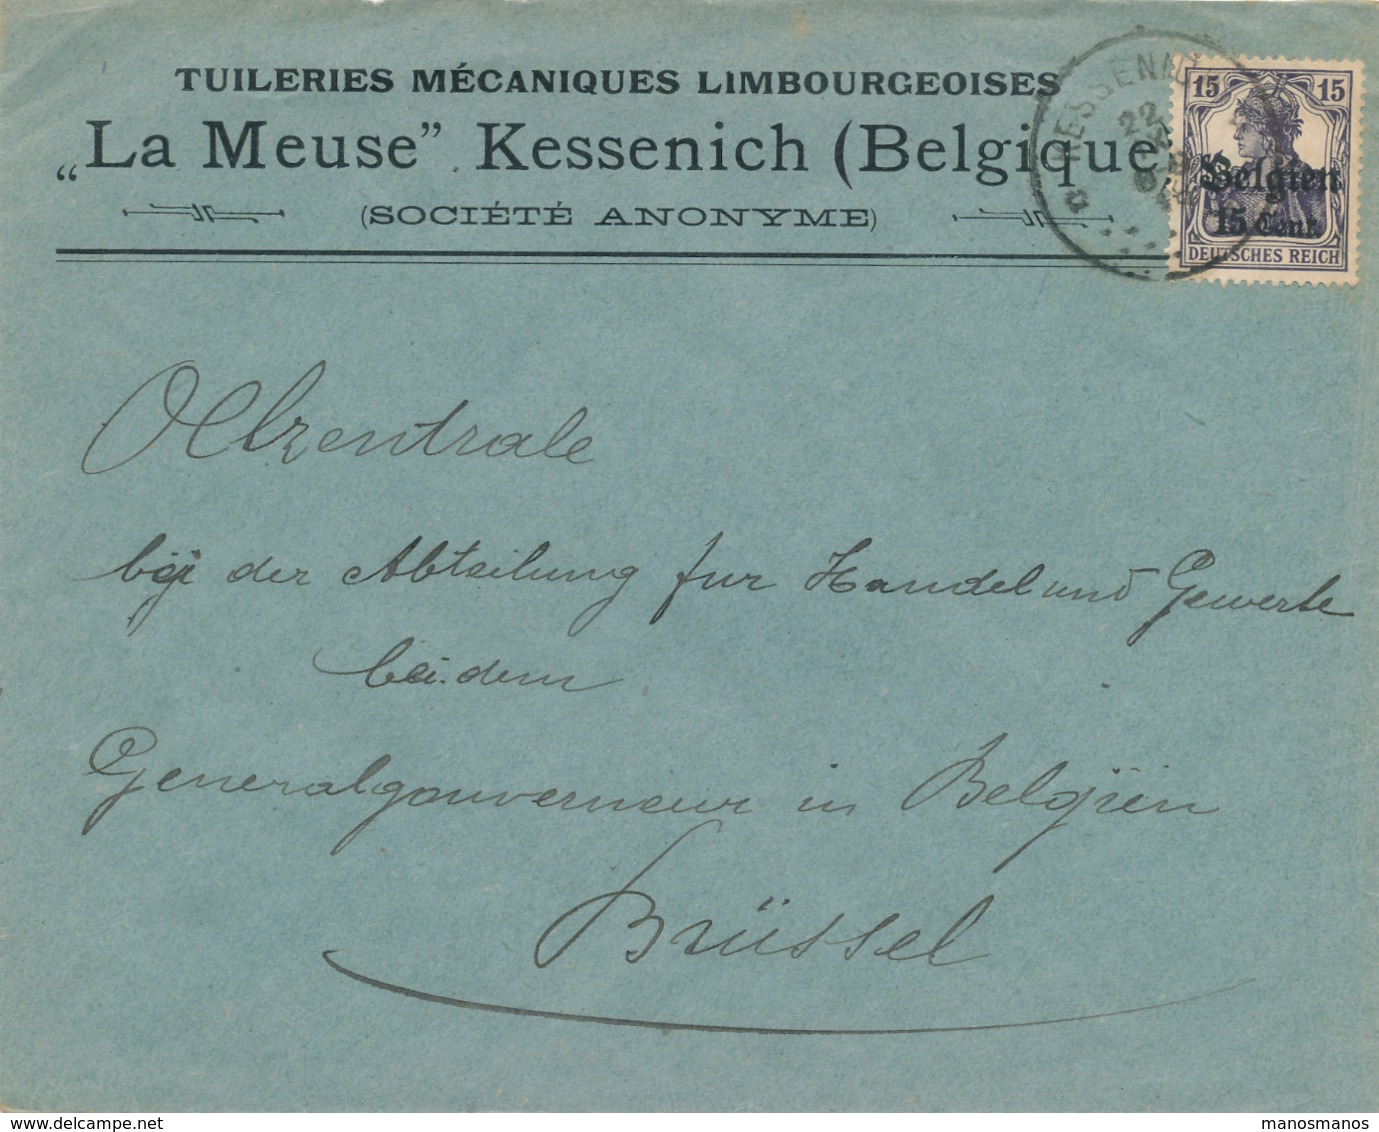 TUILERIES MÉCANIQUES LIMBOURGEOISES
„La Meuse” Kessenich (Belgique
(SOCIÉTÉ ANONYME)
KESSENI
22
15 15
Belgien
15 Cent.
DEUTSCHES REICH
Oelzentrale
bei der Abteilung fur Handel und Gewerbe
bei dem
Generalgouverneur in Belgien
Brüssel
www.delcampe.net
manosmanos